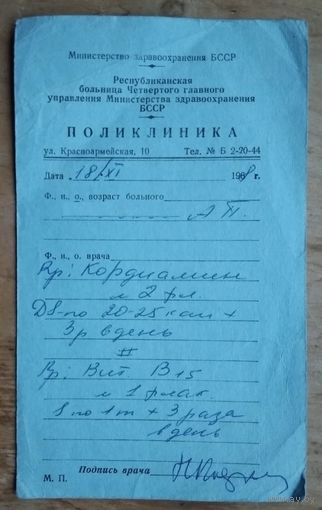 Министерство здравоохранения БССР
Республиканская
больница Четвертого главного
управления Министерства здравоохранения
БССР
ПОЛИКЛИНИКА
ул. Красноармейская, 10 Тел. № Б 2-20-44
Дата 18/XI 1968 г.
Ф., и., о., возраст больного
А П.
Ф., и., о. врача
Rp: Кордиамин
2 фл.
DS. по 20-25 кап ×
3 р в день
II
Rp: Вит B15
1 флак.
S по 1 т × 3 раза
в день
М. П. Подпись врача